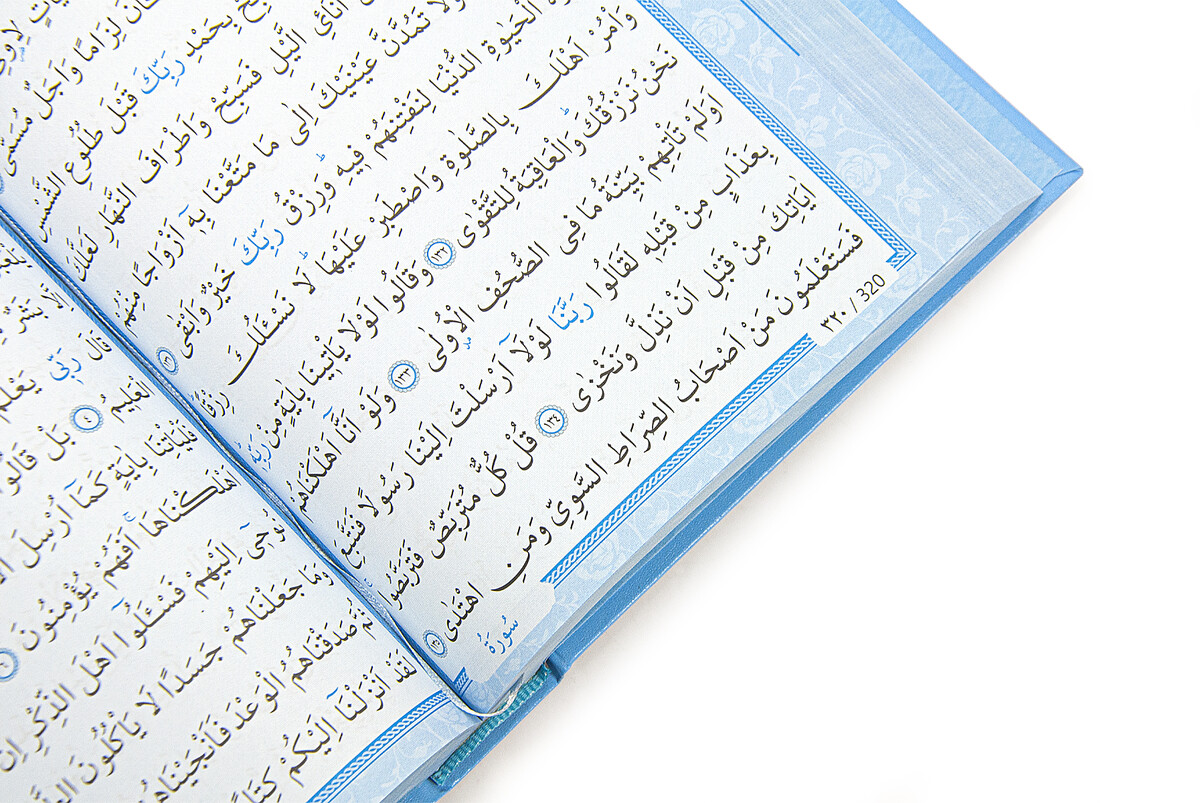 كَانَ لِزَامًا وَاَجَلٌ مُسَمًّى
بِحَمْدِ رَبِّكَ قَبْلَ طُلُوعِ الشَّمْسِ
اٰنَٓائِ الَّيْلِ فَسَبِّحْ وَاَطْرَافَ النَّهَارِ لَعَلَّكَ
وَلَا تَمُدَّنَّ عَيْنَيْكَ اِلٰى مَا مَتَّعْنَا بِه۪ٓ اَزْوَاجًا مِنْهُمْ
الْحَيٰوةِ الدُّنْيَا لِنَفْتِنَهُمْ ف۪يهِ وَرِزْقُ رَبِّكَ خَيْرٌ وَاَبْقٰى ١٣١
وَأْمُرْ اَهْلَكَ بِالصَّلٰوةِ وَاصْطَبِرْ عَلَيْهَا لَا نَسْـَٔلُكَ رِزْقًا
نَحْنُ نَرْزُقُكَ وَالْعَاقِبَةُ لِلتَّقْوٰى ١٣٢ وَقَالُوا لَوْلَا يَأْت۪ينَا بِاٰيَةٍ مِنْ رَبِّه۪
اَوَلَمْ تَأْتِهِمْ بَيِّنَةُ مَا فِى الصُّحُفِ الْاُولٰى ١٣٣ وَلَوْ اَنَّٓا اَهْلَكْنَاهُمْ
بِعَذَابٍ مِنْ قَبْلِه۪ لَقَالُوا رَبَّنَا لَوْلَٓا اَرْسَلْتَ اِلَيْنَا رَسُولًا فَنَتَّبِعَ
اٰيَاتِكَ مِنْ قَبْلِ اَنْ نَذِلَّ وَنَخْزٰى ١٣٤ قُلْ كُلٌّ مُتَرَبِّصٌ فَتَرَبَّصُوا
فَسَتَعْلَمُونَ مَنْ اَصْحَابُ الصِّرَاطِ السَّوِىِّ وَمَنِ اهْتَدٰى ١٣٥
٣٢٠ / 320
سُورَةُ
قَالَ رَبّ۪ى يَعْلَمُ
الْعَل۪يمُ ٤ بَلْ قَالُوا
فَلْيَأْتِنَا بِاٰيَةٍ كَمَٓا اُرْسِلَ
اَهْلَكْنَاهَا اَفَهُمْ يُؤْمِنُونَ ٦
نُوح۪ٓى اِلَيْهِمْ فَسْـَٔلُٓوا اَهْلَ الذِّكْرِ اِنْ
وَمَا جَعَلْنَاهُمْ جَسَدًا لَا يَأْكُلُونَ
ثُمَّ صَدَقْنَاهُمُ الْوَعْدَ فَاَنْجَيْنَاهُمْ
لَقَدْ اَنْزَلْنَٓا اِلَيْكُمْ